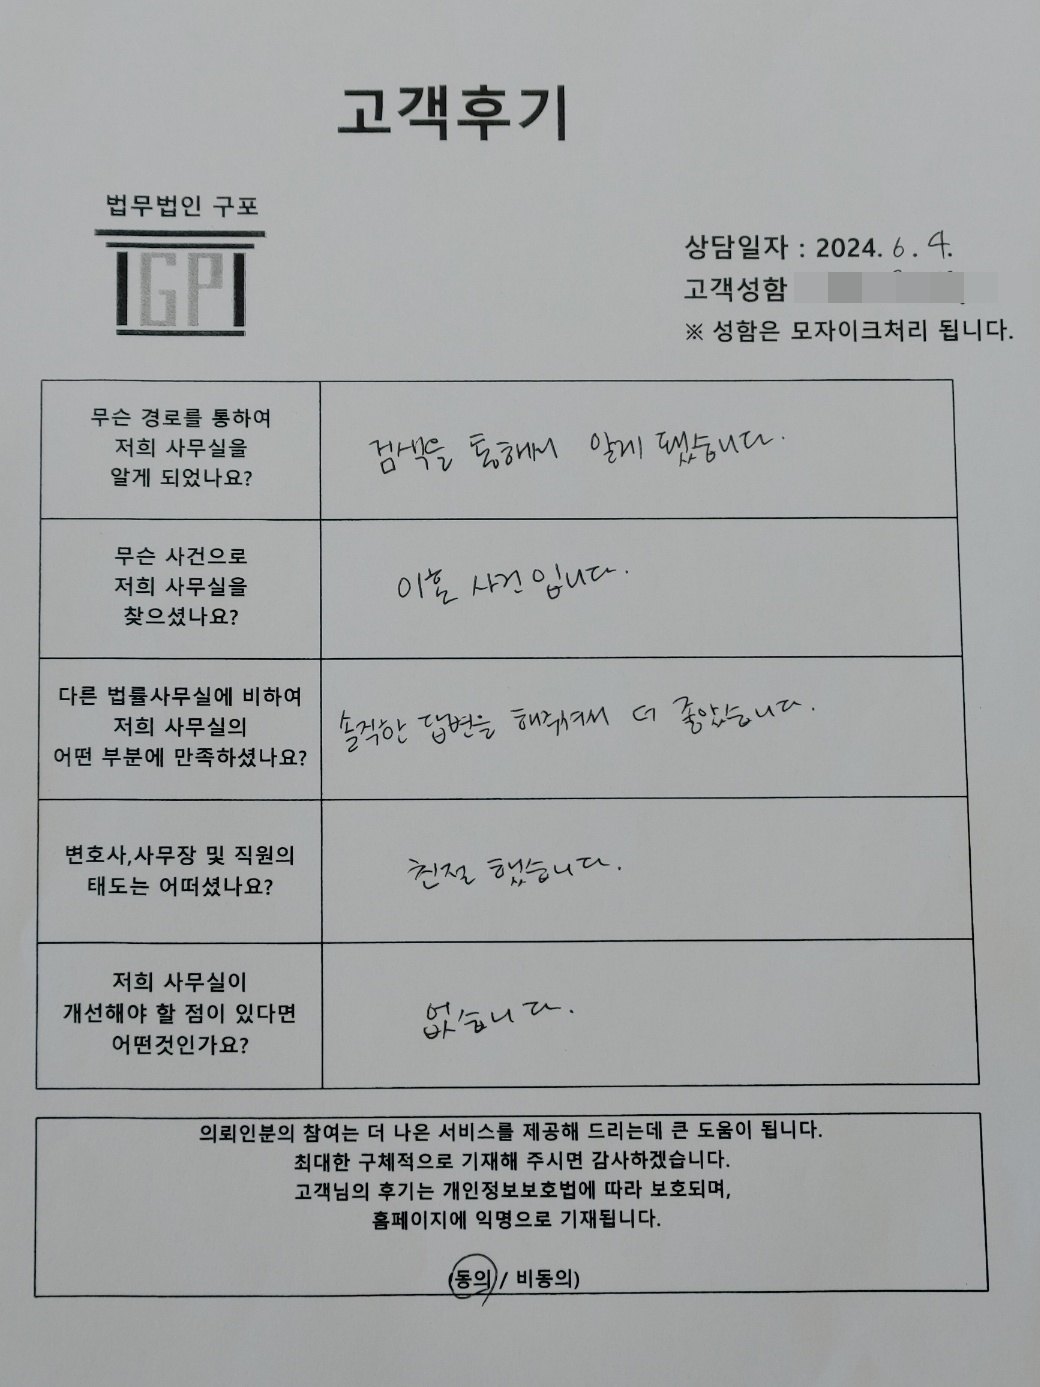 고객후기
법무법인 구포
GP
상담일자 : 2024. 6. 4.
고객성함
※ 성함은 모자이크처리 됩니다.
무슨 경로를 통하여
저희 사무실을
알게 되었나요?
검색을 통해서 알게 됐습니다.
무슨 사건으로
저희 사무실을
찾으셨나요?
이혼 사건입니다.
다른 법률사무실에 비하여
저희 사무실의
어떤 부분에 만족하셨나요?
솔직한 답변을 해주셔서 더 좋았습니다.
변호사,사무장 및 직원의
태도는 어떠셨나요?
친절 했습니다.
저희 사무실이
개선해야 할 점이 있다면
어떤것인가요?
없습니다.
의뢰인분의 참여는 더 나은 서비스를 제공해 드리는데 큰 도움이 됩니다.
최대한 구체적으로 기재해 주시면 감사하겠습니다.
고객님의 후기는 개인정보보호법에 따라 보호되며,
홈페이지에 익명으로 기재됩니다.
(동의 / 비동의)